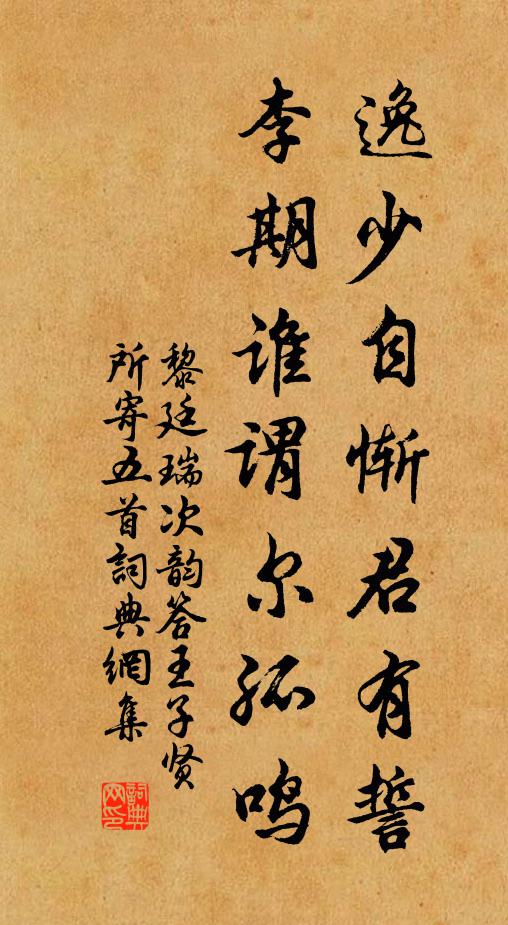 逸少自惭君有誓
李期谁谓尔孤鸣
黎廷瑞次韵答王子贤
所寄五首詞典網集
詞典网印